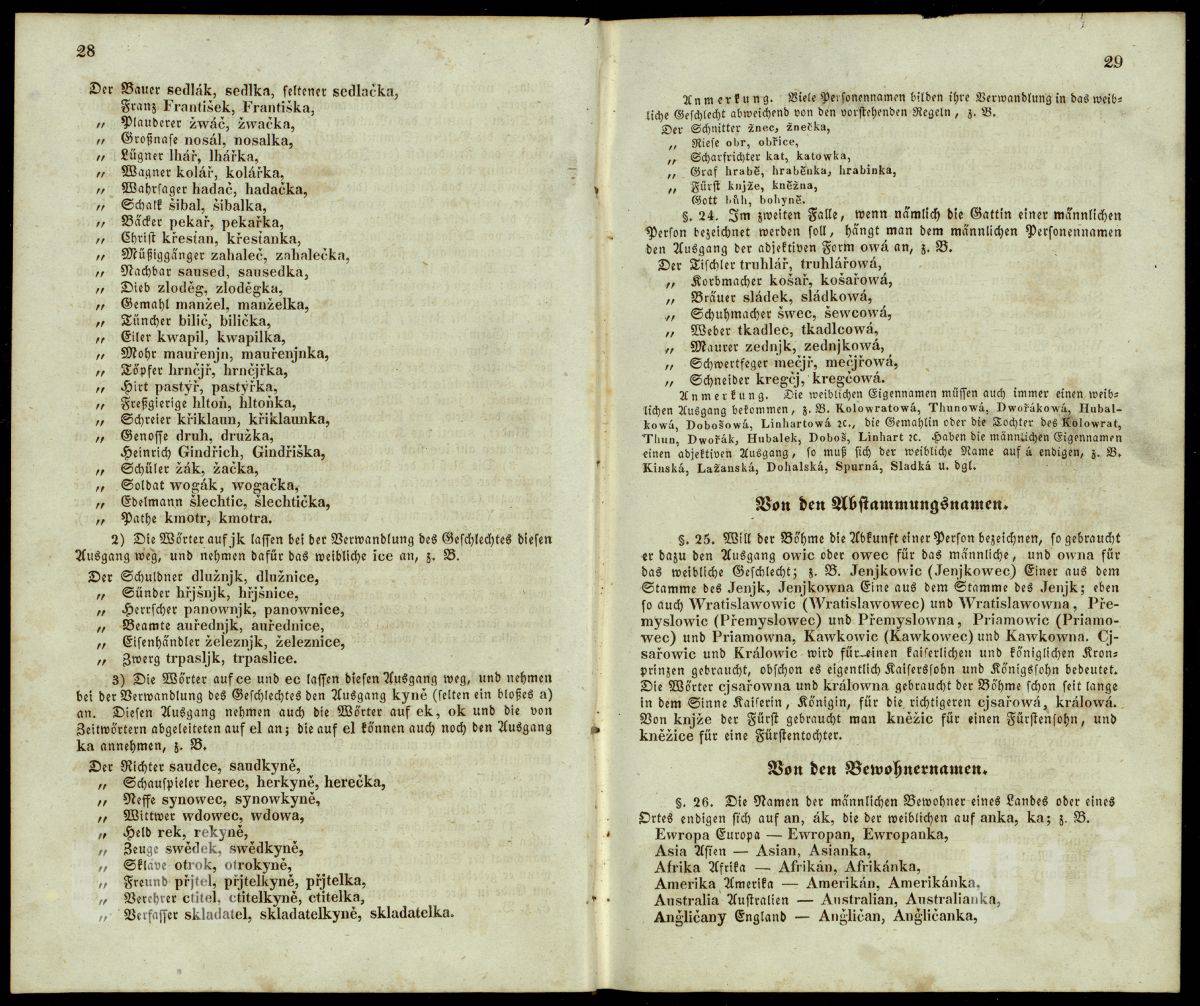 28
Der Bauer sedlák, sedlka, seltener sedlačka,
Franz František, Františka,
„ Plauderer žwáč, žwačka,
„ Großnase nosál, nosalka,
„ Lügner lhář, lhářka,
„ Wagner kolář, kolářka,
„ Wahrsager hadač, hadačka,
„ Schalk šibal, šibalka,
„ Bäcker pekař, pekařka,
„ Christ křesian, křesianka,
„ Müßiggänger zahaleč, zahalečka,
„ Nachbar saused, sausedka,
„ Dieb zloděg, zloděgka,
„ Gemahl manžel, manželka,
„ Tüncher bilič, bilička,
„ Eiler kwapil, kwapilka,
„ Mohr mauřenjn, mauřenjnka,
„ Töpfer hrnčjř, hrnčjřka,
„ Hirt pastýř, pastýřka,
„ Freßgierige hltoň, hltoňka,
„ Schreier křiklaun, křiklaunka,
„ Genosse druh, družka,
Heinrich Gindřich, Gindřiška,
„ Schüler žák, žačka,
„ Soldat wogák, wogačka,
„ Edelmann šlechtic, šlechtička,
„ Pathe kmotr, kmotra.
2) Die Wörter auf jk lassen bei der Verwandlung des Geschlechtes diesen
Ausgang weg, und nehmen dafür das weibliche ice an, z. B.
Der Schuldner dlužnjk, dlužnice,
„ Sünder hřjšnjk, hřjšnice,
„ Herrscher panownjk, panownice,
„ Beamte auřednjk, auřednice,
„ Eisenhändler železnjk, železnice,
„ Zwerg trpasljk, trpaslice.
3) Die Wörter auf ce und ec lassen diesen Ausgang weg, und nehmen
bei der Verwandlung des Geschlechtes den Ausgang kyně (selten ein bloßes a)
an. Diesen Ausgang nehmen auch die Wörter auf ek, ok und die von
Zeitwörtern abgeleiteten auf el an; die auf el können auch noch den Ausgang
ka annehmen, z. B.
Der Richter saudce, saudkyně,
„ Schauspieler herec, herkyně, herečka,
„ Neffe synowec, synowkyně,
„ Wittwer wdowec, wdowa,
„ Held rek, rekyně,
„ Zeuge swědek, swědkyně,
„ Sklave otrok, otrokyně,
„ Freund přjtel, přjtelkyně, přjtelka,
„ Verehrer ctitel, ctitelkyně, ctitelka,
„ Verfasser skladatel, skladatelkyně, skladatelka.
29
Anmerkung. Viele Personennamen bilden ihre Verwandlung in das weib-
liche Geschlecht abweichend von den vorstehenden Regeln, z. B.
Der Schnitter žnec, žnečka,
„ Riese obr, obřice,
„ Scharfrichter kat, katowka,
„ Graf hrabě, hraběnka, hrabinka,
„ Fürst knjže, kněžna,
Gott bůh, bohyně.
§. 24. Im zweiten Falle, wenn nämlich die Gattin einer männlichen
Person bezeichnet werden soll, hängt man dem männlichen Personennamen
den Ausgang der adjektiven Form owá an, z. B.
Der Tischler truhlář, truhlářowá,
„ Korbmacher košař, košařowá,
„ Bräuer sládek, sládkowá,
„ Schuhmacher šwec, šewcowá,
„ Weber tkadlec, tkadlcowá,
„ Maurer zednjk, zednjkowá,
„ Schwertfeger mečjř, mečjřowá,
„ Schneider kregčj, kregčowá.
Anmerkung. Die weiblichen Eigennamen müssen auch immer einen weib-
lichen Ausgang bekommen, z. B. Kolowratowá, Thunowá, Dwořákowá, Hubal-
kowá, Dobošowá, Linhartowá ꝛc., die Gemahlin oder die Tochter des Kolowrat,
Thun, Dwořák, Hubalek, Doboš, Linhart ꝛc. Haben die männlichen Eigennamen
einen adjektiven Ausgang, so muß sich der weibliche Name auf á endigen, z. B.
Kinská, Lažanská, Dohalská, Spurná, Sladká u. dgl.
Von den Abstammungsnamen.
§. 25. Will der Böhme die Abkunft einer Person bezeichnen, so gebraucht
er dazu den Ausgang owic oder owec für das männliche, und owna für
das weibliche Geschlecht; z. B. Jenjkowic (Jenjkowec) Einer aus dem
Stamme des Jenjk, Jenjkowna Eine aus dem Stamme des Jenjk; eben
so auch Wratislawowic (Wratislawowec) und Wratislawowna, Pře-
myslowic (Přemyslowec) und Přemyslowna, Priamowic (Priamo-
wec) und Priamowna, Kawkowic (Kawkowec) und Kawkowna. Cj-
sařowic und Králowic wird für einen kaiserlichen und königlichen Kron-
prinzen gebraucht, obschon es eigentlich Kaiserssohn und Königssohn bedeutet.
Die Wörter cjsařowna und králowna gebraucht der Böhme schon seit lange
in dem Sinne Kaiserin, Königin, für die richtigeren cjsařowá, králowá.
Von knjže der Fürst gebraucht man kněžic für einen Fürstensohn, und
kněžice für eine Fürstentochter.
Von den Bewohnernamen.
§. 26. Die Namen der männlichen Bewohner eines Landes oder eines
Ortes endigen sich auf an, ák, die der weiblichen auf anka, ka; z. B.
Ewropa Europa — Ewropan, Ewropanka,
Asia Asien — Asian, Asianka,
Afrika Afrika — Afrikán, Afrikánka,
Amerika Amerika — Amerikán, Amerikánka,
Australia Australien — Australian, Australianka,
Angličany England — Angličan, Angličanka,